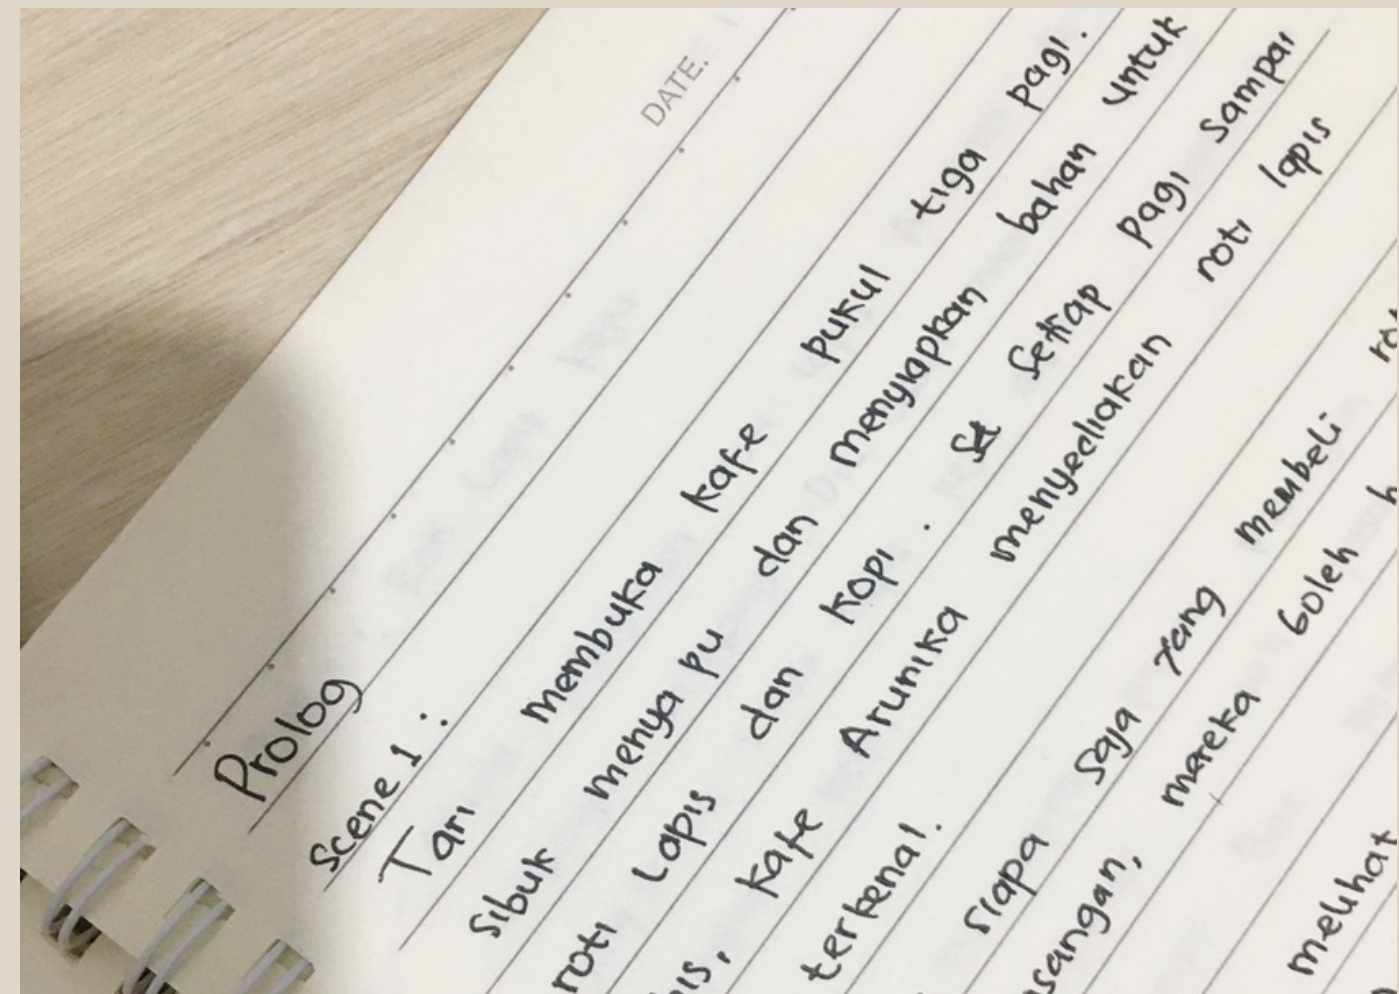 DATE.
Prolog
Scene 1 :
Tari membuka kafe pukul tiga pagi.
Sibuk menya pu dan menyiapkan bahan untuk
roti Lapis dan kopi. Setiap pagi sampai
kafe Arunika menyediakan roti lapis
terkenal.
siapa saja yang membeli
mereka boleh
melihat